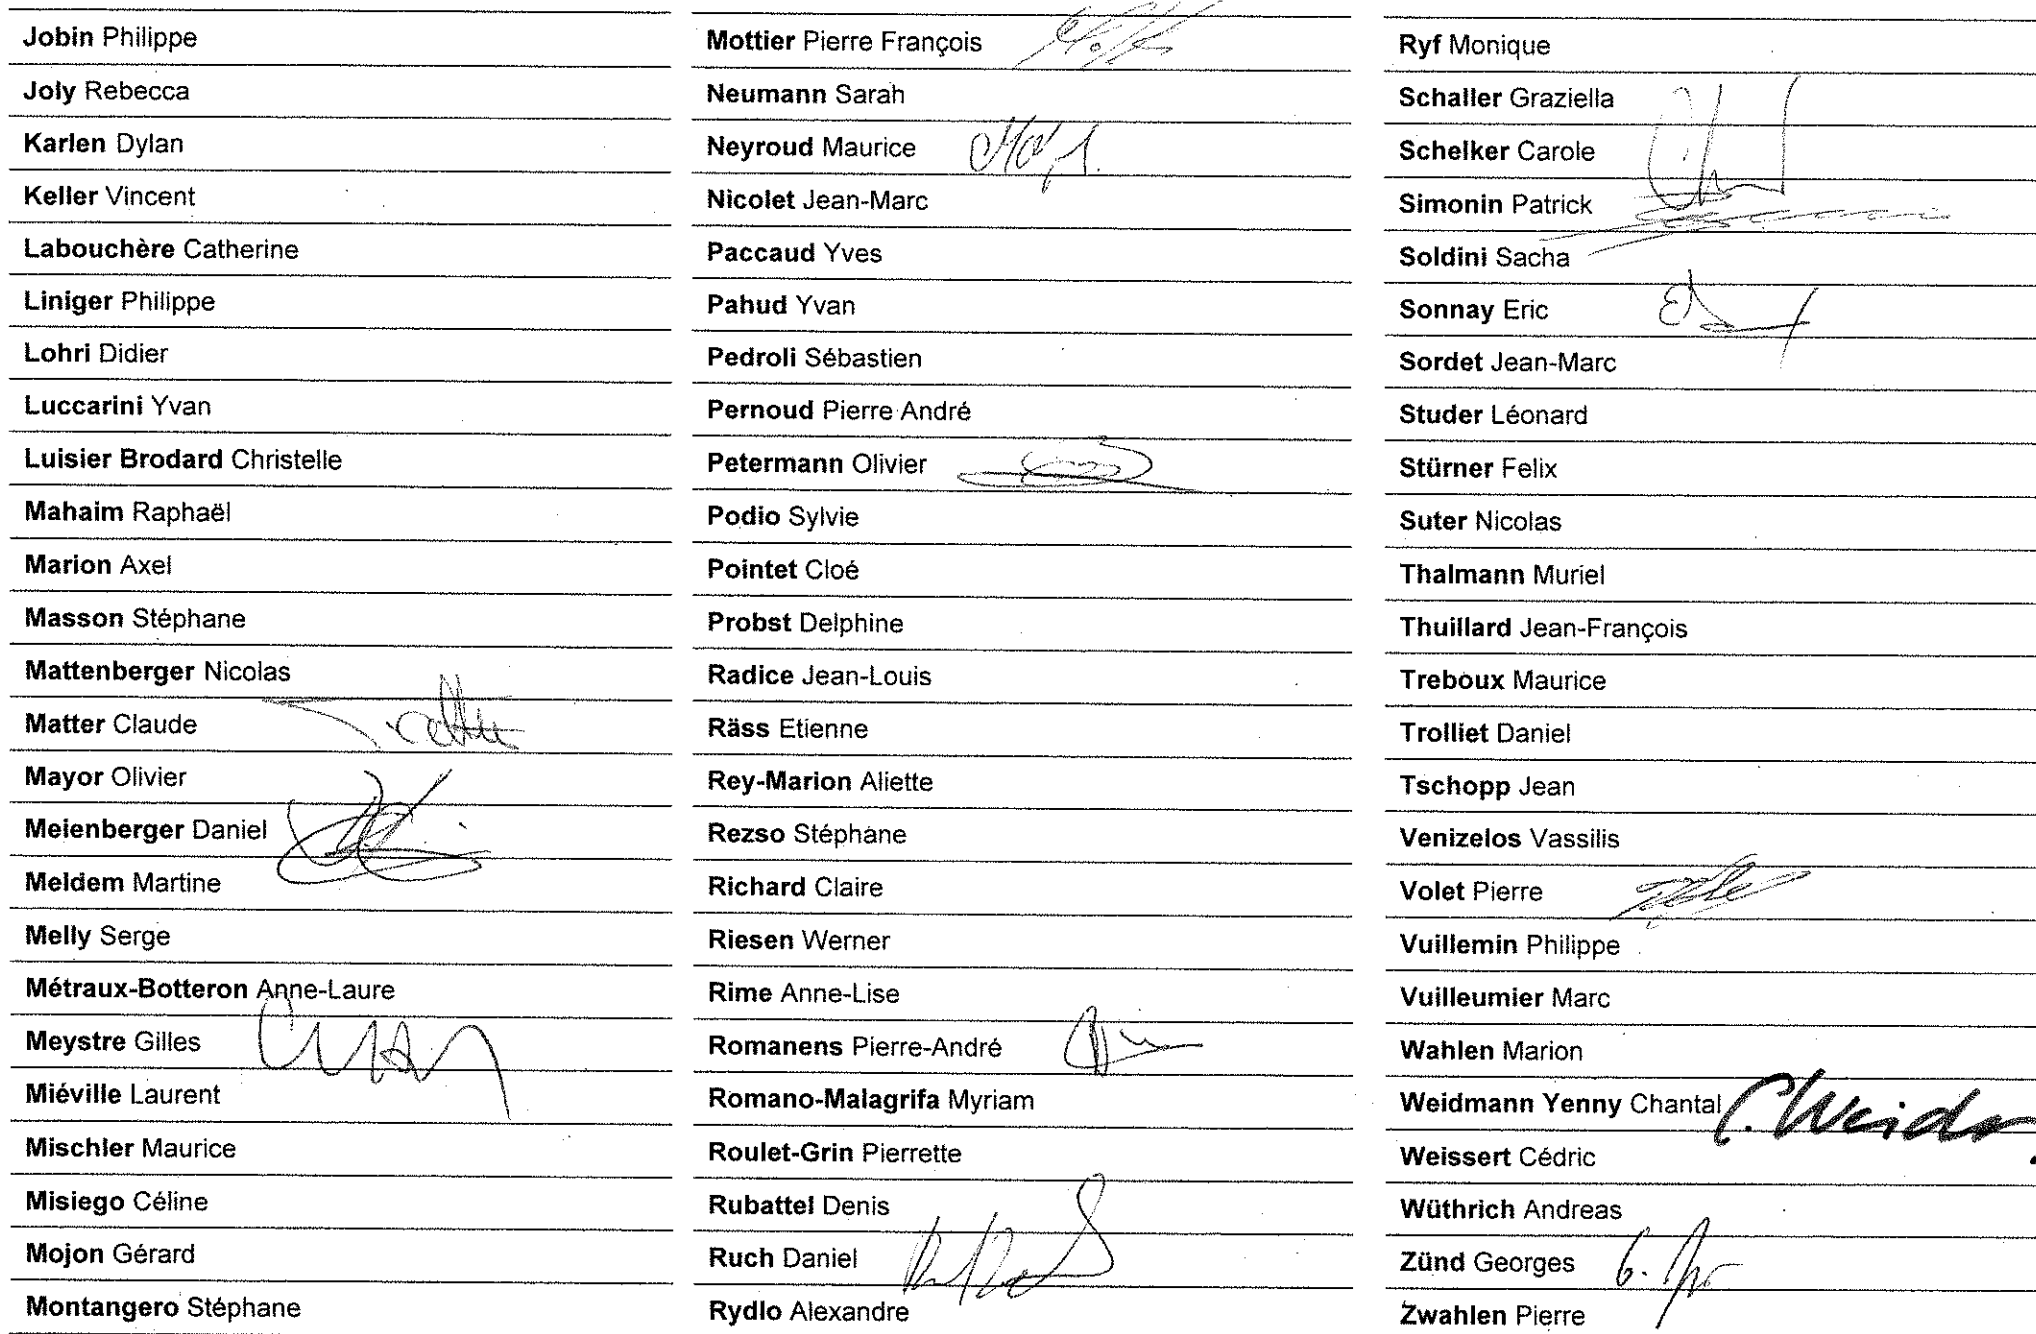 Jobin Philippe
Joly Rebecca
Karlen Dylan
Keller Vincent
Labouchère Catherine
Liniger Philippe
Lohri Didier
Luccarini Yvan
Luisier Brodard Christelle
Mahaim Raphaël
Marion Axel
Masson Stéphane
Mattenberger Nicolas
Matter Claude
Mayor Olivier
Meienberger Daniel
Meldem Martine
Melly Serge
Métraux-Botteron Anne-Laure
Meystre Gilles
Miéville Laurent
Mischler Maurice
Misiego Céline
Mojon Gérard
Montangero Stéphane
Mottier Pierre François
Neumann Sarah
Neyroud Maurice
Nicolet Jean-Marc
Paccaud Yves
Pahud Yvan
Pedroli Sébastien
Pernoud Pierre André
Petermann Olivier
Podio Sylvie
Pointet Cloé
Probst Delphine
Radice Jean-Louis
Räss Etienne
Rey-Marion Aliette
Rezso Stéphane
Richard Claire
Riesen Werner
Rime Anne-Lise
Romanens Pierre-André
Romano-Malagrifa Myriam
Roulet-Grin Pierrette
Rubattel Denis
Ruch Daniel
Rydlo Alexandre
Ryf Monique
Schaller Graziella
Schelker Carole
Simonin Patrick
Soldini Sacha
Sonnay Eric
Sordet Jean-Marc
Studer Léonard
Stürner Felix
Suter Nicolas
Thalmann Muriel
Thuillard Jean-François
Treboux Maurice
Trolliet Daniel
Tschopp Jean
Venizelos Vassilis
Volet Pierre
Vuillemin Philippe
Vuilleumier Marc
Wahlen Marion
Weidmann Yenny Chantal C. Weidm
Weissert Cédric
Wüthrich Andreas
Zünd Georges
Zwahlen Pierre